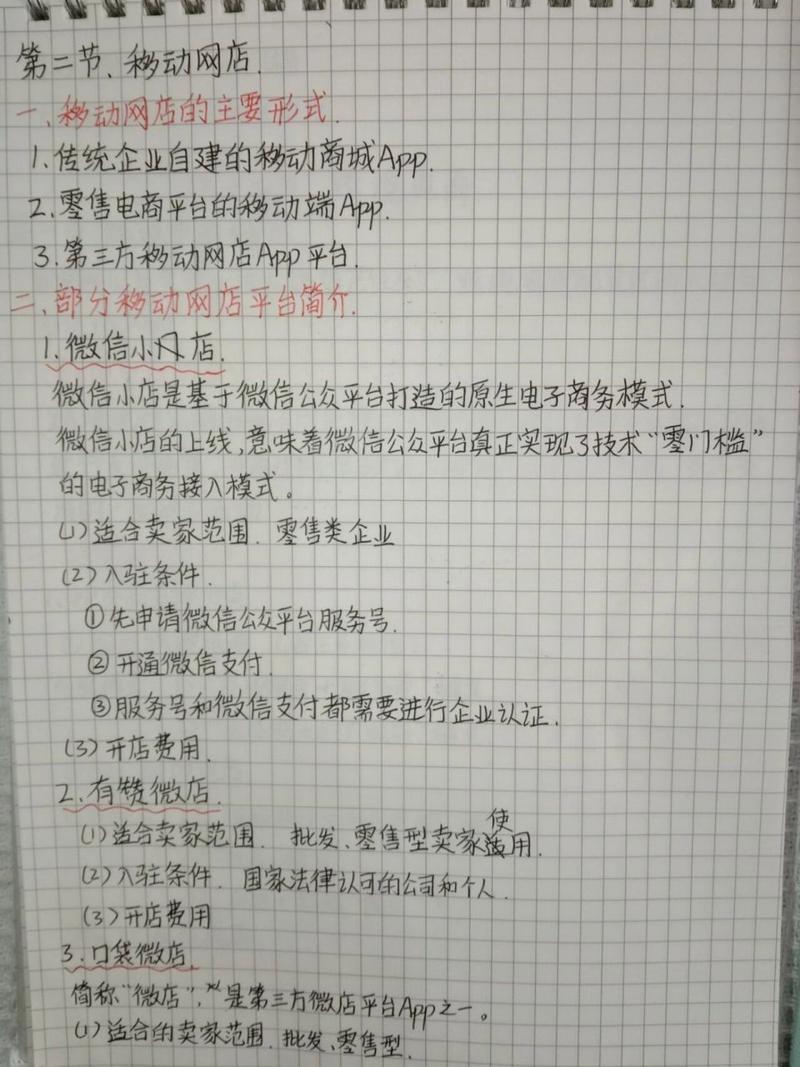 第二节、移动网店.
一、移动网店的主要形式.
1.传统企业自建的移动商城App.
2.零售电商平台的移动端App.
3.第三方移动网店App平台.
二、部分移动网店平台简介.
1.微信小店.
微信小店是基于微信公众平台打造的原生电子商务模式.
微信小店的上线,意味着微信公众平台真正实现了技术“零门槛”
的电子商务接入模式。
(1)适合卖家范围. 零售类企业
(2)入驻条件.
①先申请微信公众平台服务号.
②开通微信支付.
③服务号和微信支付都需要进行企业认证.
(3)开店费用.
2.有赞微店.
(1)适合卖家范围. 批发、零售型卖家使用.
(2)入驻条件. 国家法律认可的公司和个人.
(3)开店费用
3.口袋微店.
简称“微店”,是第三方微店平台App之一。
(1)适合的卖家范围. 批发、零售型.